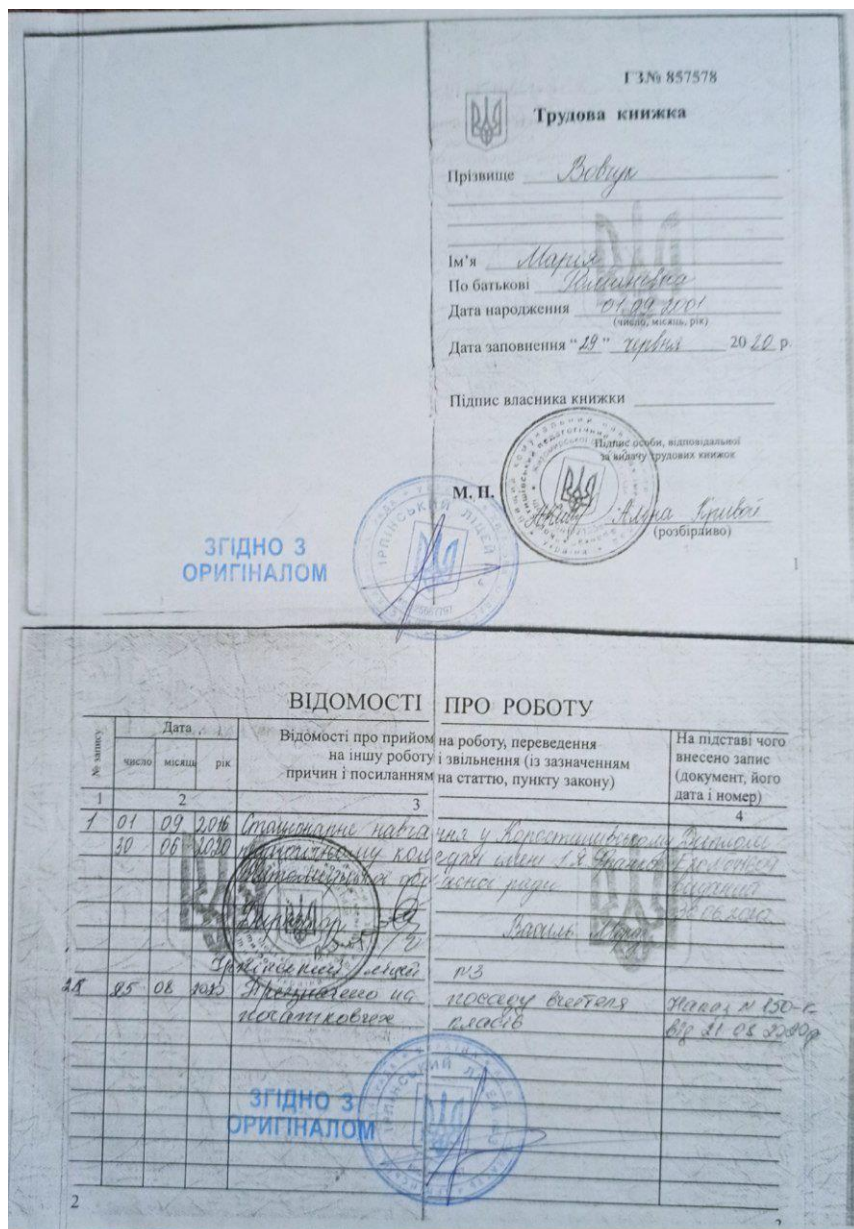 ГЗ№ 857578
Трудова книжка
Прізвище Вовчук
Ім'я Марія
По батькові
Дата народження 01.09.2001
(число, місяць, рік)
Дата заповнення "29" червня 2020 р.
Підпис власника книжки
Підпис особи, відповідальної
за видачу трудових книжок
М. П.
Аліна
(розбірливо)
ЗГІДНО З
ОРИГІНАЛОМ
ІРПІНСЬКИЙ ЛІЦЕЙ
1
ВІДОМОСТІ ПРО РОБОТУ
№ запису
Дата
число місяць рік
Відомості про прийом на роботу, переведення
на іншу роботу і звільнення (із зазначенням
причин і посиланням на статтю, пункту закону)
На підставі чого
внесено запис
(документ, його
дата і номер)
1 2 3 4
1 01 09 2016 Стаціонарне навчання у Коростишівському Диплом
30 06 2020 педагогічному коледжі імені І.Я. Франка
Житомирської обласної ради виданий
30.06.2020
Директор Василь
Ірпінський ліцей №3
25 08 2020 Призначено на посаду вчителя Наказ № 150-к
початкових класів від 21 08 2020р
ЗГІДНО З
ОРИГІНАЛОМ
ІРПІНСЬКИЙ ЛІЦЕЙ
2